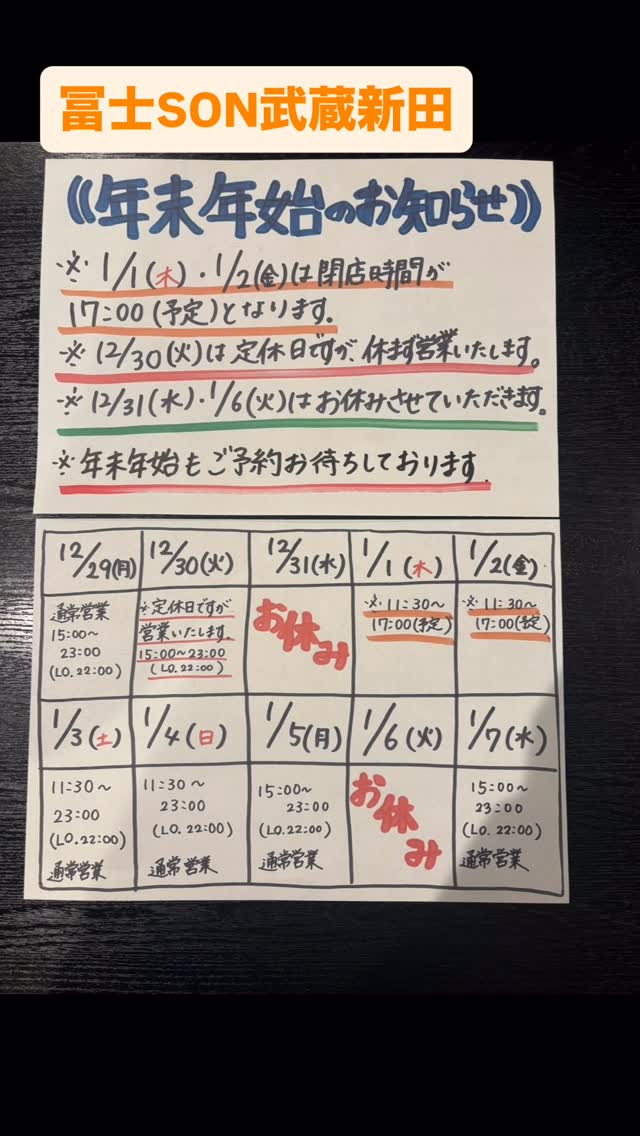 冨士SON武蔵新田
《年末年始のお知らせ》
※ 1/1(木)・1/2(金)は閉店時間が
17:00(予定)となります。
※ 12/30(火)は定休日ですが、休まず営業いたします。
※ 12/31(水)・1/6(火)はお休みさせていただきます。
※ 年末年始もご予約お待ちしております。
12/29(月) 12/30(火) 12/31(水) 1/1(木) 1/2(金)
通常営業
15:00~
23:00
(LO.22:00)
※定休日ですが
営業いたします。
15:00~23:00
(LO.22:00)
お休み
※ 11:30~
17:00(予定)
※ 11:30~
17:00(予定)
1/3(土) 1/4(日) 1/5(月) 1/6(火) 1/7(水)
11:30~
23:00
(LO.22:00)
通常営業
11:30~
23:00
(LO.22:00)
通常営業
15:00~
23:00
(LO.22:00)
通常営業
お休み
15:00~
23:00
(LO.22:00)
通常営業